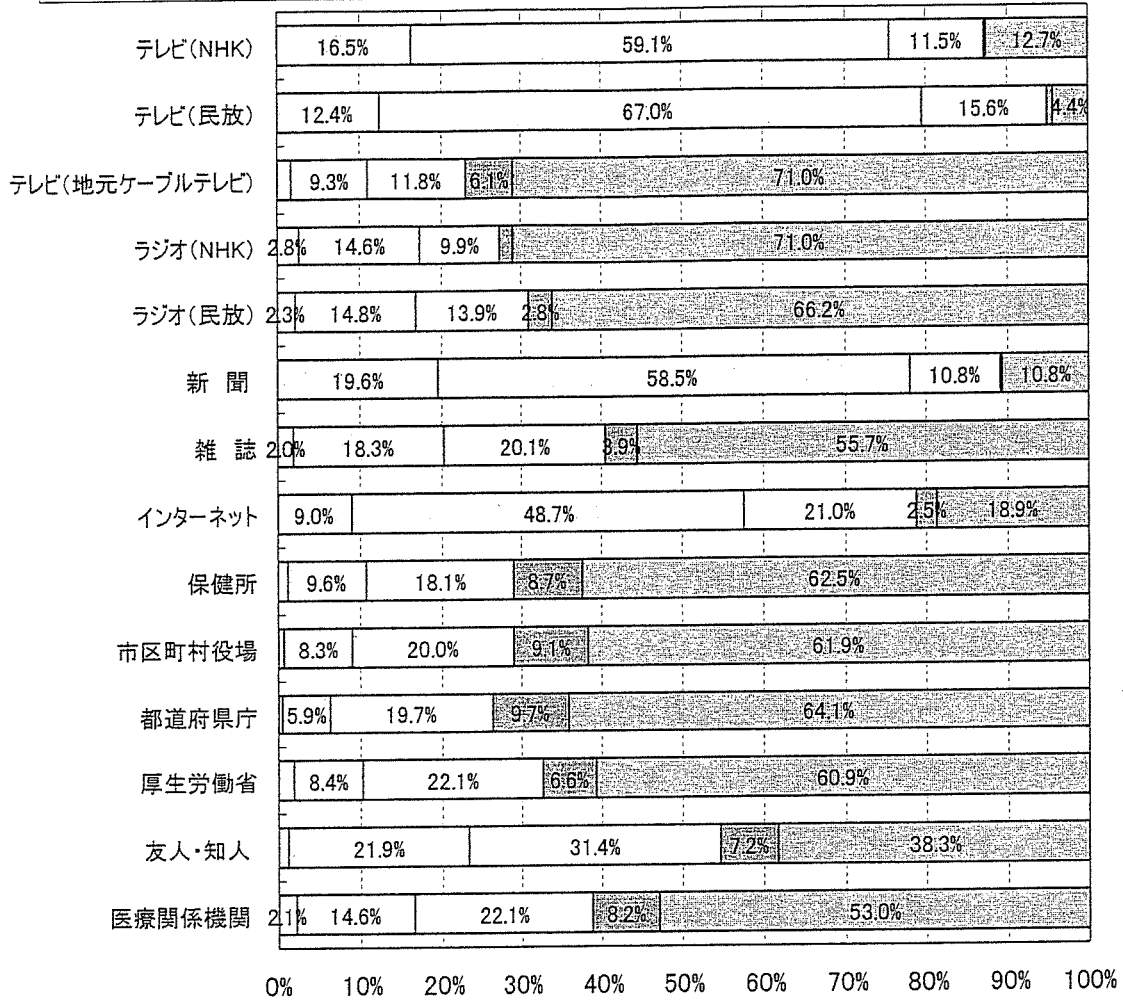 テレビ(NHK) 16.5% 59.1% 11.5% 12.7%
テレビ(民放) 12.4% 67.0% 15.6% 4.4%
テレビ(地元ケーブルテレビ) 9.3% 11.8% 6.1% 71.0%
ラジオ(NHK) 2.8% 14.6% 9.9% 71.0%
ラジオ(民放) 2.3% 14.8% 13.9% 2.8% 66.2%
新 聞 19.6% 58.5% 10.8% 10.8%
雑 誌 2.0% 18.3% 20.1% 3.9% 55.7%
インターネット 9.0% 48.7% 21.0% 2.5% 18.9%
保健所 9.6% 18.1% 8.7% 62.5%
市区町村役場 8.3% 20.0% 9.1% 61.9%
都道府県庁 5.9% 19.7% 9.7% 64.1%
厚生労働省 8.4% 22.1% 6.6% 60.9%
友人・知人 21.9% 31.4% 7.2% 38.3%
医療関係機関 2.1% 14.6% 22.1% 8.2% 53.0%
0% 10% 20% 30% 40% 50% 60% 70% 80% 90% 100%